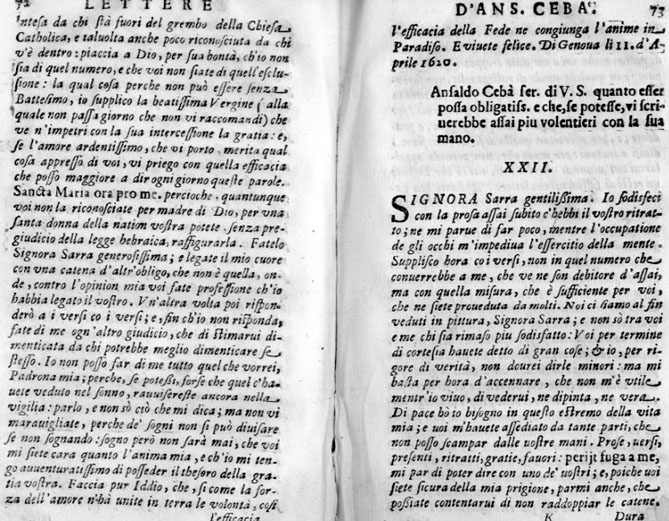 72 LETTERE
intesa da chi stà fuori del grembo della Chiesa
Cattolica, e taluolta anche poco riconosciuta da chi
v'è dentro: piaccia a Dio, per sua bontà, ch'io non
sia di quel numero, e che voi non siate di quell'esclu-
sione: la qual cosa perche non può essere senza
Battesimo, io supplico la beatissima Vergine (alla
quale non passa giorno che non vi raccomandi) che
ve n'impetri con la sua intercessione la gratia: e,
se l'amore ardentissimo, che vi porto, merita qual
cosa appresso di voi, vi priego con quella efficacia
che posso maggiore a dir ogni giorno queste parole.
Sancta Maria ora pro me. percioche, quantunque
voi non la riconosciate per madre di Dio, per vna
santa donna della nation vostra potete, senza pre-
giudicio della legge hebraica, raffigurarla. Fatelo
Signora Sarra generosissima; e legate il mio cuore
con vna catena d'altr'obligo, che non è quella, on-
de, contro l'opinion mia voi fate professione ch'io
habbia legato il vostro. Vn'altra volta poi rispon-
derò a i versi co i versi; e, fin ch'io non risponda,
fate di me ogn'altro giudicio, che di stimarui di-
menticata da chi potrebbe meglio dimenticare se
stesso. Io non posso far di me tutto quel che vorrei,
Padrona mia; perche, se potessi, forse che quel c'ha-
uete veduto nel sonno, rauuisereste ancora nella
vigilia: parlo, e non sò ciò che mi dica; ma non vi
marauigliate, perche de' sogni non si può diuisare
se non sognando: sogno però non sarà mai, che voi
mi siete cara quanto l'anima mia, e ch'io mi ten-
go auuenturatissimo di posseder il thesoro della gra-
tia vostra. Faccia pur Iddio, che, si come la for-
za dell'amore n'hà unite in terra le volontà, così
l'efficacia
D'ANS. CEBA'. 73
l'efficacia della Fede ne congiunga l'anime in
Paradiso. E viuete felice. Di Genoua li 11. d'A-
prile 1620.
Ansaldo Cebà ser. di V. S. quanto esser
possa obligatiss. e che, se potesse, vi scri-
uerebbe assai piu volentieri con la sua
mano.
XXII.
SIGNORA Sarra gentilissima. Io sodisfeci
con la prosa assai subito c'hebbi il vostro ritrat-
to; ne mi parue di far poco, mentre l'occupatione
de gli occhi m'impediua l'essercitio della mente.
Supplisco hora coi versi, non in quel numero che
conuerrebbe a me, che ve ne son debitore d'assai,
ma con quella misura, che è sufficiente per voi,
che ne siete proueduta da molti. Noi ci siamo al fin
veduti in pittura, Signora Sarra; e non sò tra voi
e me chi sia rimaso piu sodisfatto: Voi per termine
di cortesia hauete detto di gran cose; & io, per ri-
gore di verità, non dourei dirle minori: ma mi
basta per hora d'accennare, che non m'è vtile
mentr'io viuo, di vederui, ne dipinta, ne vera.
Di pace hò io bisogno in questo estremo della vita
mia; e uoi m'hauete assediato da tante parti, che
non posso scampar dalle uostre mani. Prose, uersi,
presenti, ritratti, gratie, fauori: perijt fuga a me,
mi par di poter dire con uno de' uostri; e, poiche uoi
siete sicura della mia prigione, parmi anche, che
possiate contentarui di non raddoppiar le catene.
K Dura